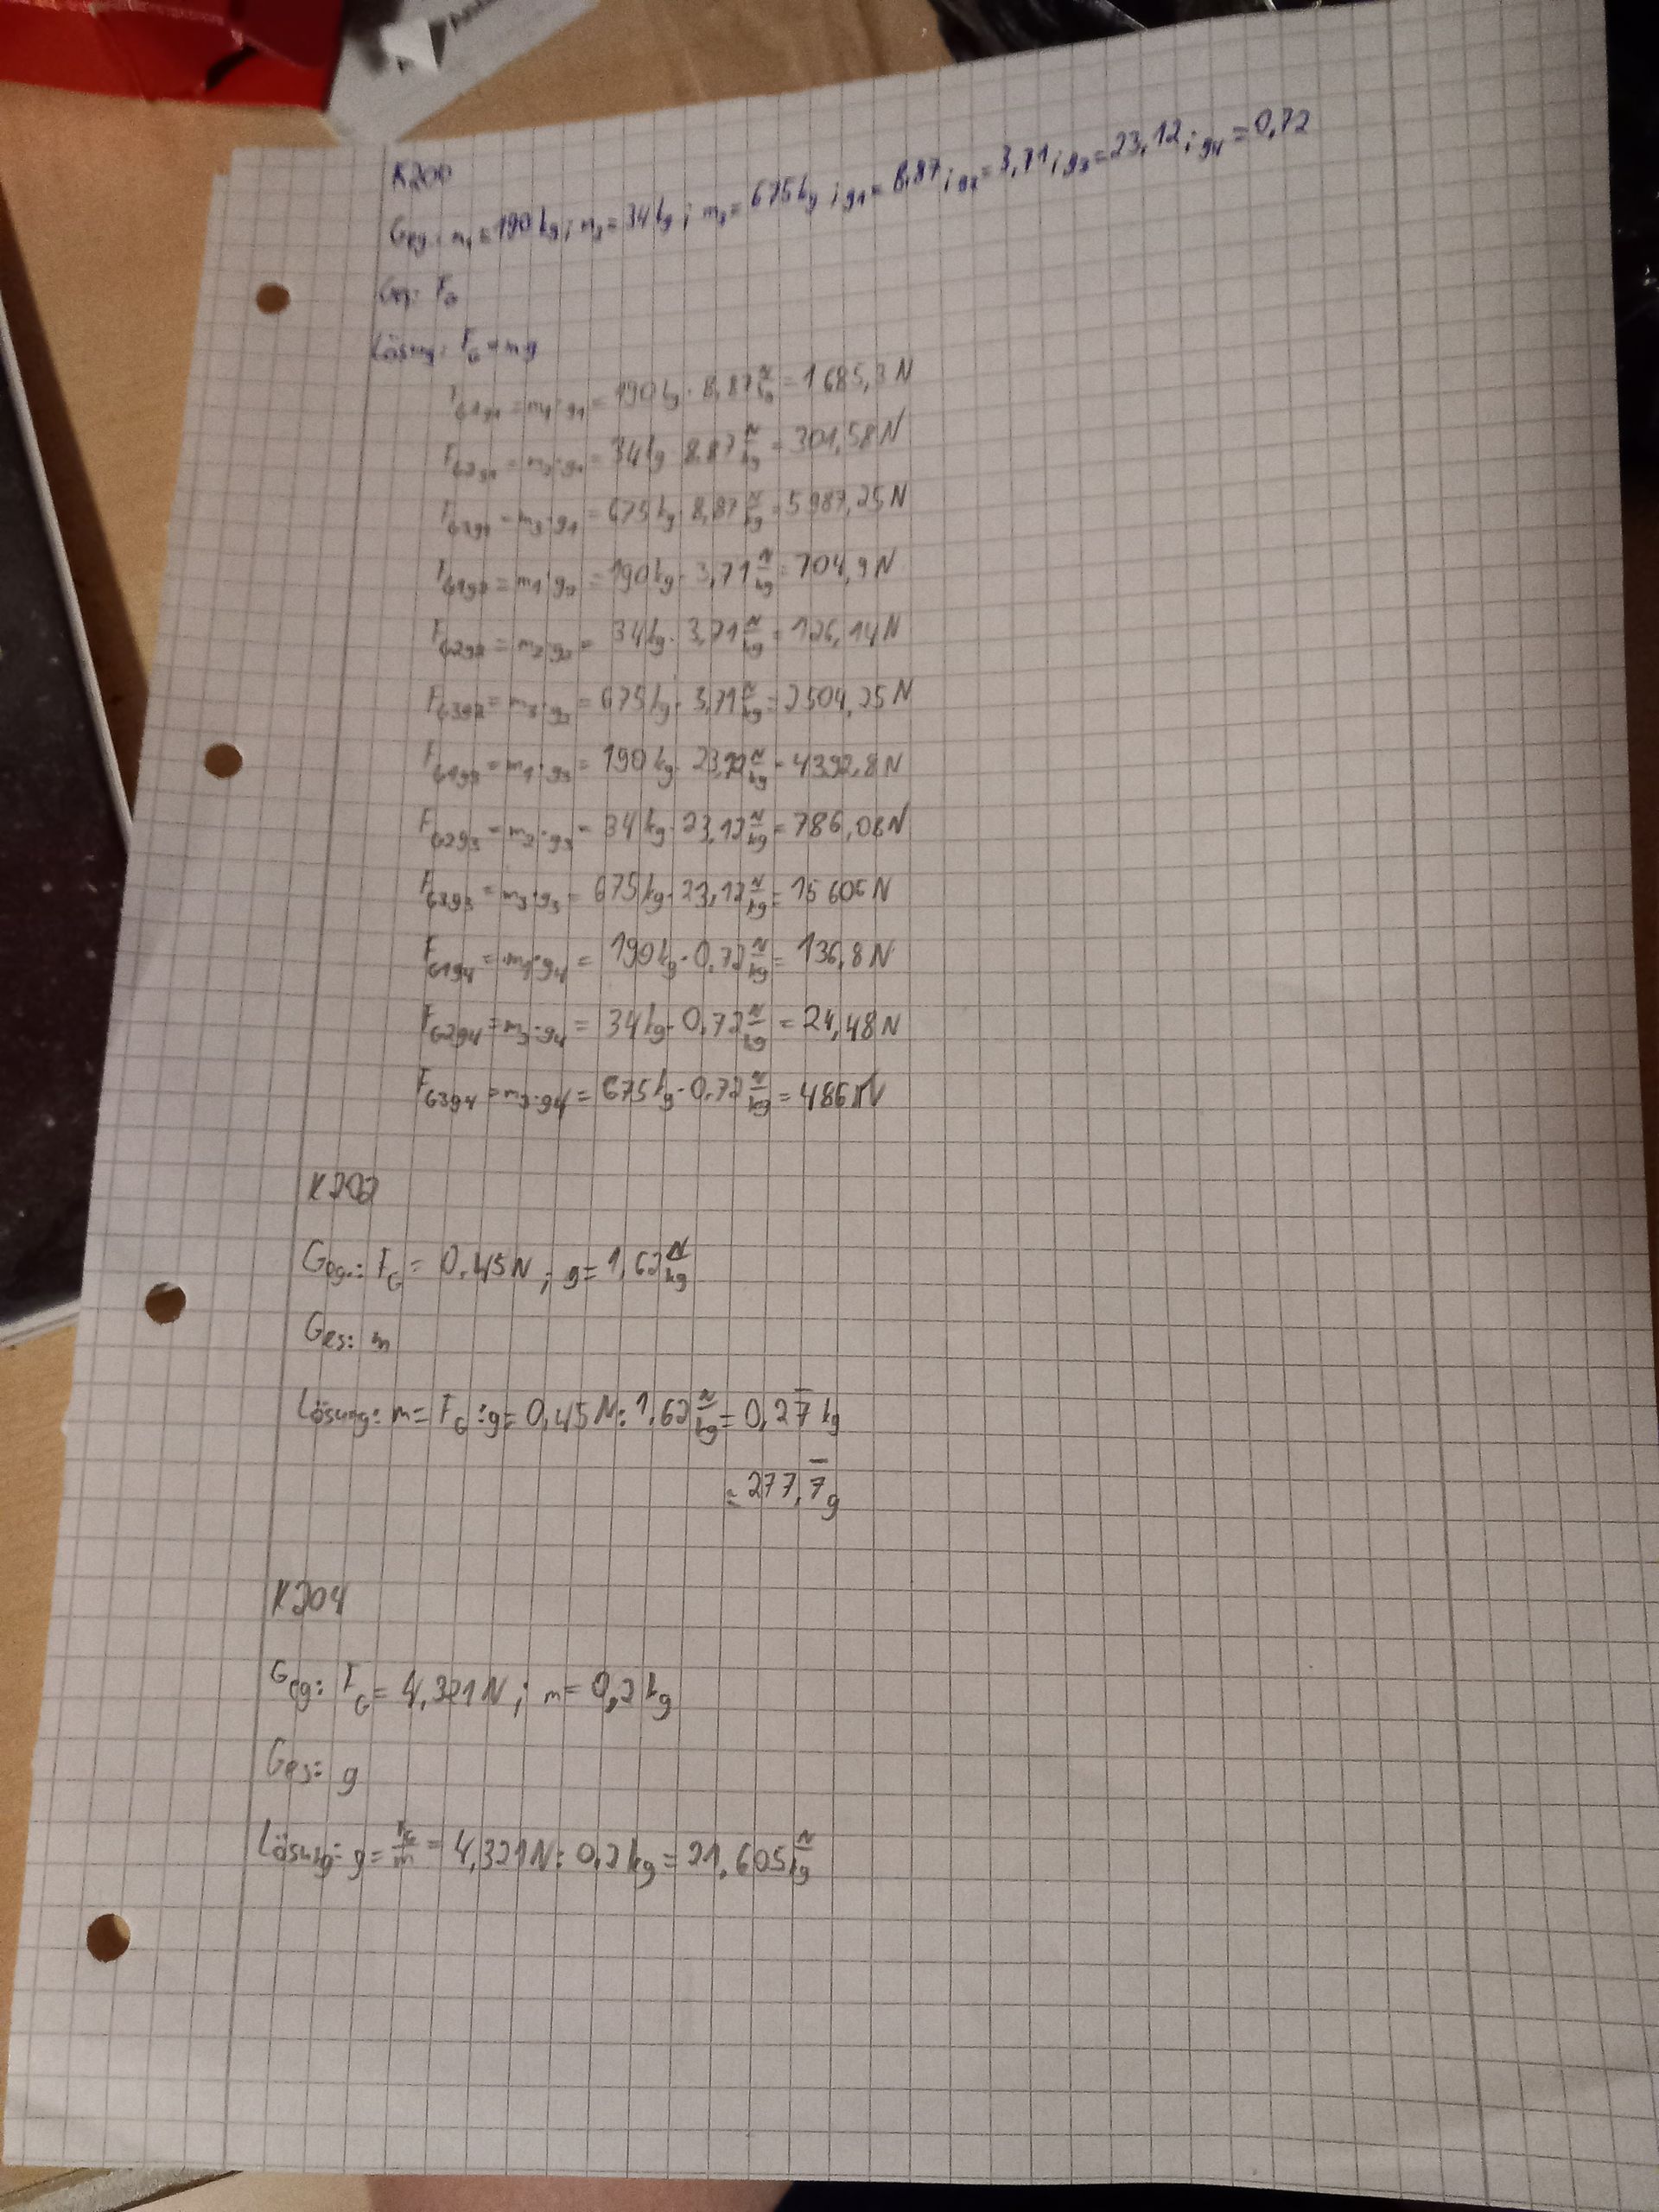 K200
Geg.: m₁ = 190 kg ; m₂ = 34 kg ; m₃ = 675 kg ; g₁ = 8,87 ; g₂ = 3,71 ; g₃ = 23,12 ; g₄ = 0,72
Ges: F_G
Lösung: F_G = mg
F_G1g1 = m₁·g₁ = 190 kg · 8,87 N/kg = 1685,3 N
F_G2g1 = m₂·g₁ = 34 kg · 8,87 N/kg = 301,58 N
F_G3g1 = m₃·g₁ = 675 kg · 8,87 N/kg = 5987,25 N
F_G1g2 = m₁·g₂ = 190 kg · 3,71 N/kg = 704,9 N
F_G2g2 = m₂·g₂ = 34 kg · 3,71 N/kg = 126,14 N
F_G3g2 = m₃·g₂ = 675 kg · 3,71 N/kg = 2504,25 N
F_G1g3 = m₁·g₃ = 190 kg · 23,12 N/kg = 4392,8 N
F_G2g3 = m₂·g₃ = 34 kg · 23,12 N/kg = 786,08 N
F_G3g3 = m₃·g₃ = 675 kg · 23,12 N/kg = 15 605 N
F_G1g4 = m₁·g₄ = 190 kg · 0,72 N/kg = 136,8 N
F_G2g4 = m₂·g₄ = 34 kg · 0,72 N/kg = 24,48 N
F_G3g4 = m₃·g₄ = 675 kg · 0,72 N/kg = 486 N
K202
Geg.: F_G = 0,45 N ; g = 1,62 N/kg
Ges: m
Lösung: m = F_G : g = 0,45 N : 1,62 N/kg = 0,27̅ kg
= 277,7̅ g
K204
Geg: F_G = 4,321 N ; m = 0,2 kg
Ges: g
Lösung: g = F_G/m = 4,321 N : 0,2 kg = 21,605 N/kg